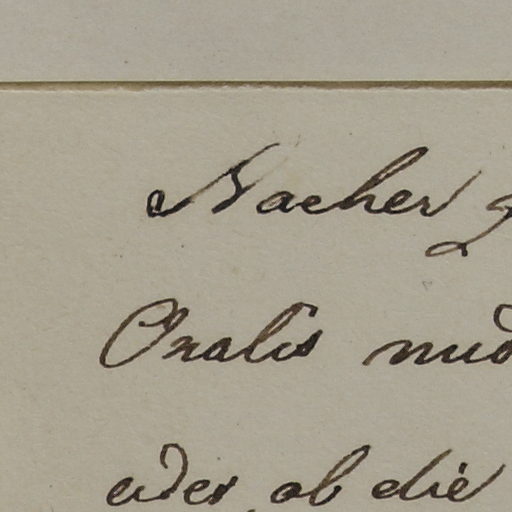 Nacher g
Oxalis nud
oder, ob die